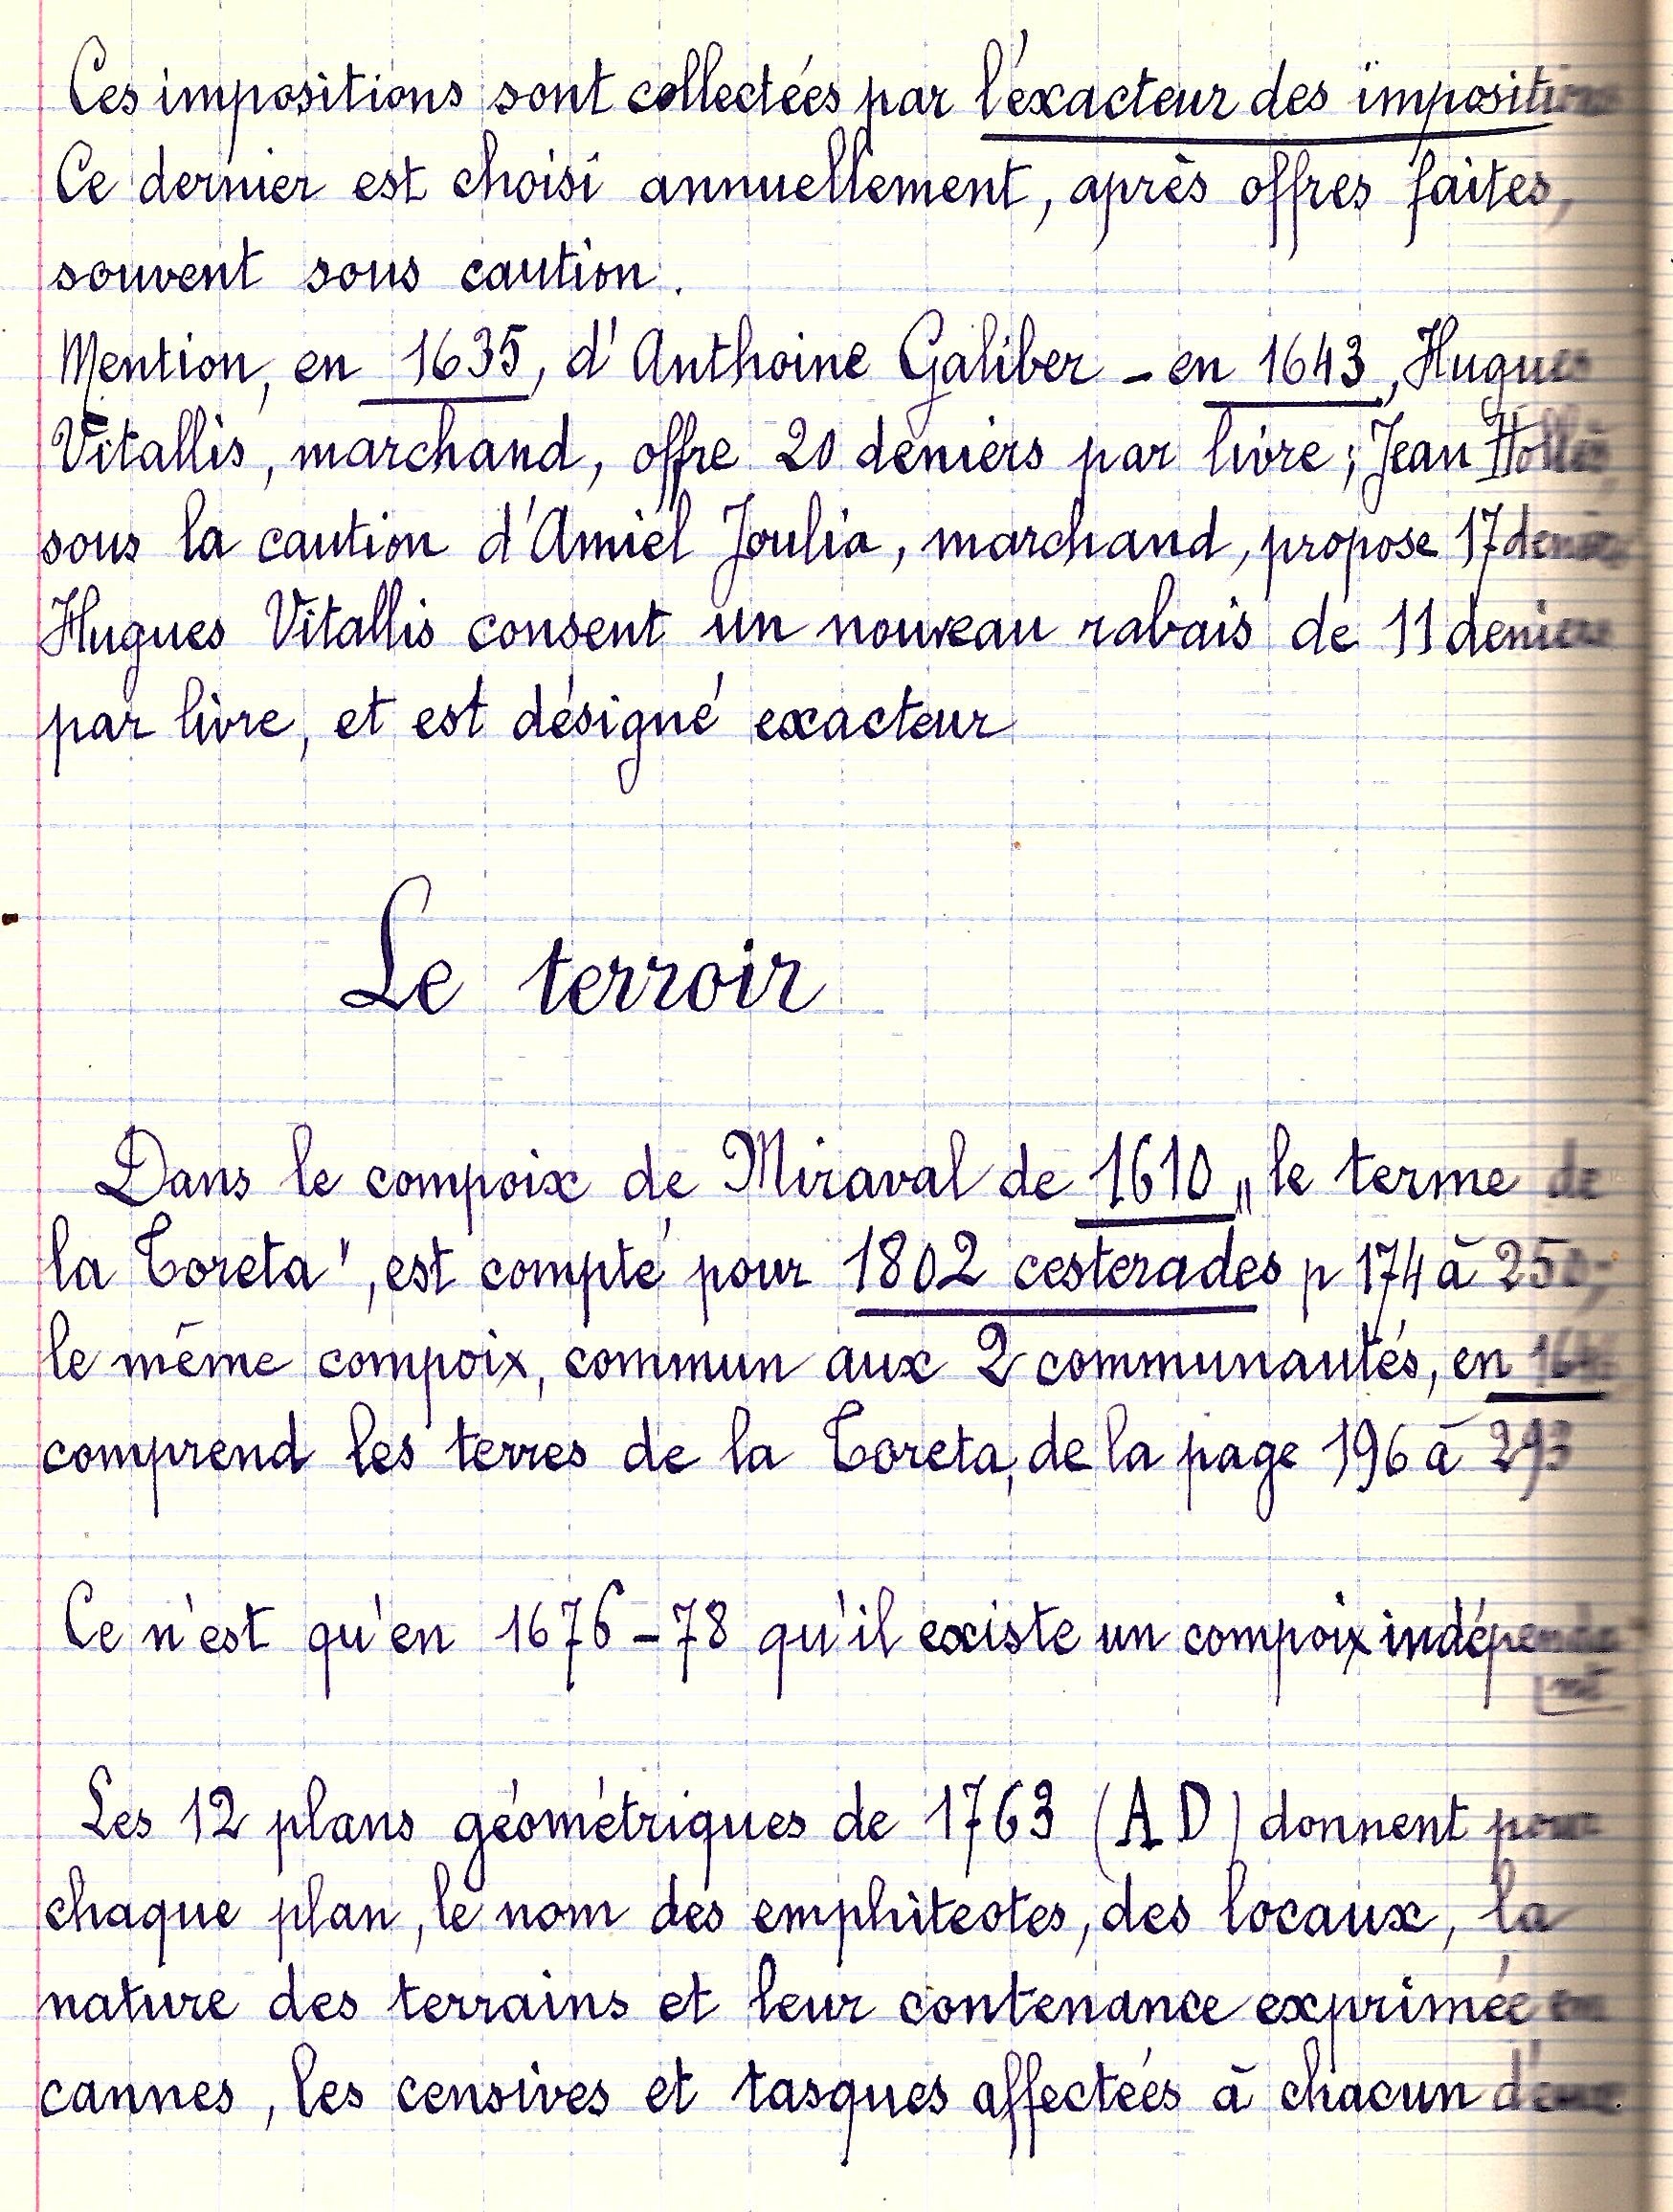 Ces impositions sont collectées par l'éxacteur des impositions
Ce dernier est choisi annuellement, après offres faites,
souvent sous caution.
Mention, en 1635, d'Anthoine Galiber - en 1643, Hugues
Vitallis, marchand, offre 20 deniers par livre ; Jean
sous la caution d'Amiel Joulia, marchand, propose 17 deniers
Hugues Vitallis consent un nouveau rabais de 11 deniers
par livre, et est désigné exacteur
Le terroir
Dans le compoix de Miraval de 1610 "le terme de
la Toreta", est compté pour 1802 cesterades p 174 à 250;
le même compoix, commun aux 2 communautés, en
comprend les terres de la Toreta, de la page 196 à 293
Ce n'est qu'en 1676-78 qu'il existe un compoix indépenda
nt
Les 12 plans géométriques de 1763 (AD) donnent pour
chaque plan, le nom des emphiteotes, des locaux, la
nature des terrains et leur contenance exprimée en
cannes, les censives et tasques affectées à chacun d'eux